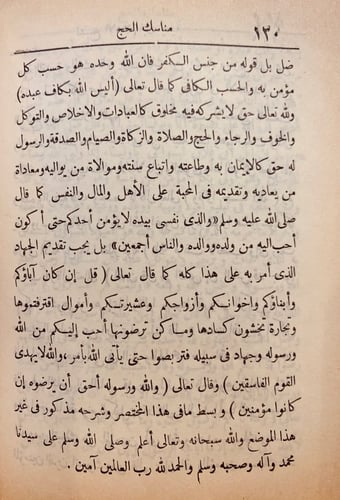 ١٣٠
مناسك الحج
ضل بل قوله من جنس الكفر فان الله وحده هو حسب كل
مؤمن به والحسب الكافى كما قال تعالى (أليس الله بكاف عبده)
ولله تعالى حق لا يشركه فيه مخلوق كالعبادات والاخلاص والتوكل
والخوف والرجاء والحج والصلاة والزكاة والصيام والصدقة والرسول
له حق كالإيمان به وطاعته واتباع سنته وموالاة من يواليه ومعاداة
من يعاديه وتقديمه فى المحبة على الأهل والمال والنفس كما قال
صلى الله عليه وسلم «والذى نفسى بيده لا يؤمن أحدكم حتى أكون
أحب اليه من ولده ووالده والناس أجمعين» بل يجب تقديم الجهاد
الذى أمر به على هذا كله كما قال تعالى ( قل إن كان آباؤكم
وأبناؤكم واخوانكم وأزواجكم وعشيرتكم وأموال اقترفتموها
وتجارة تخشون كسادها ومساكن ترضونها أحب إليكم من الله
ورسوله وجهاد فى سبيله فتربصوا حتى يأتى الله بأمره والله لا يهدى
القوم الفاسقين ) وقال تعالى ( والله ورسوله أحق أن يرضوه إن
كانوا مؤمنين ) وبسط مافى هذا المختصر وشرحه مذكور فى غير
هذا الموضع والله سبحانه وتعالى أعلم وصلى الله وسلم على سيدنا
محمد وآله وصحبه وسلم والحمد لله رب العالمين آمين .